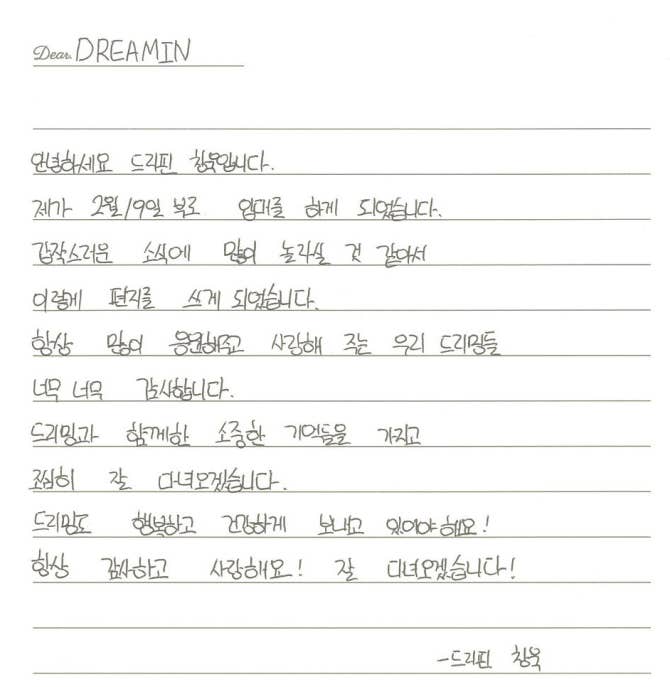 Dear. DREAMIN
안녕하세요 드리핀 창욱입니다.
제가 2월19일 부로 입대를 하게 되었습니다.
갑작스러운 소식에 많이 놀라실 것 같아서
이렇게 편지를 쓰게 되었습니다.
항상 많이 응원해주고 사랑해 주는 우리 드리밍들
너무 너무 감사합니다.
드리밍과 함께한 소중한 기억들을 가지고
조심히 잘 다녀오겠습니다.
드리밍도 행복하고 건강하게 보내고 있어야해요!
항상 감사하고 사랑해요! 잘 다녀오겠습니다!
-드리핀 창욱